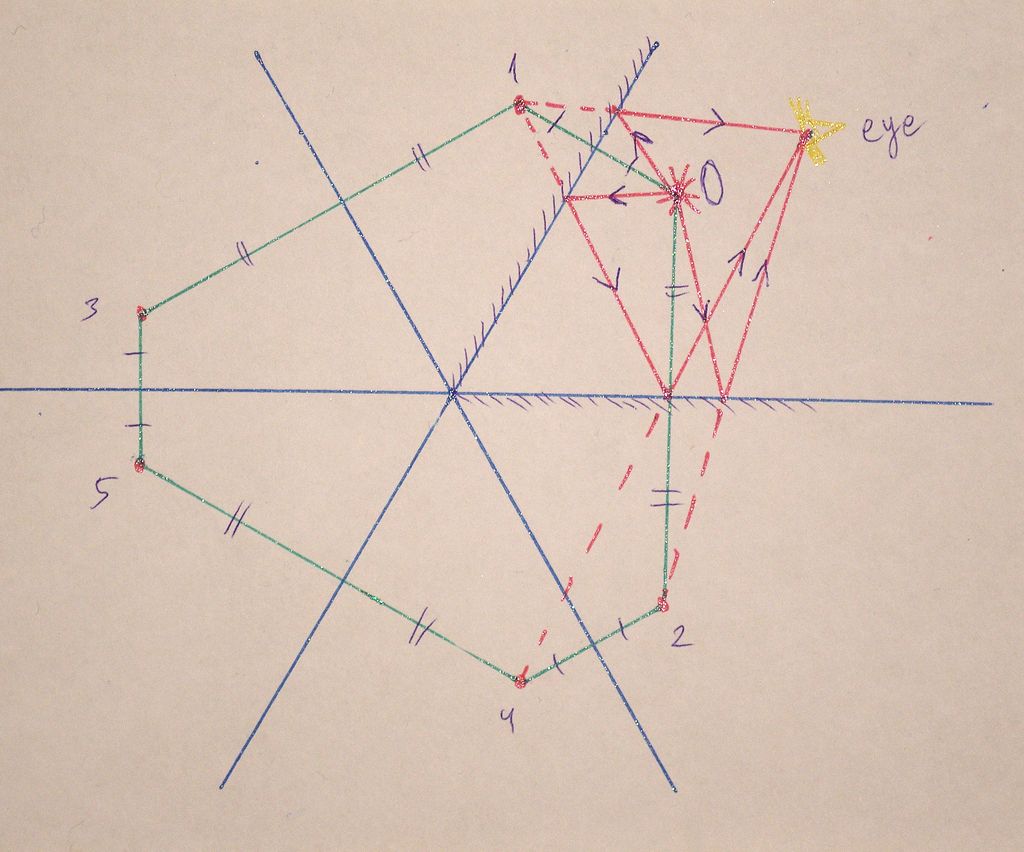 1
eye
0
3
5
2
4